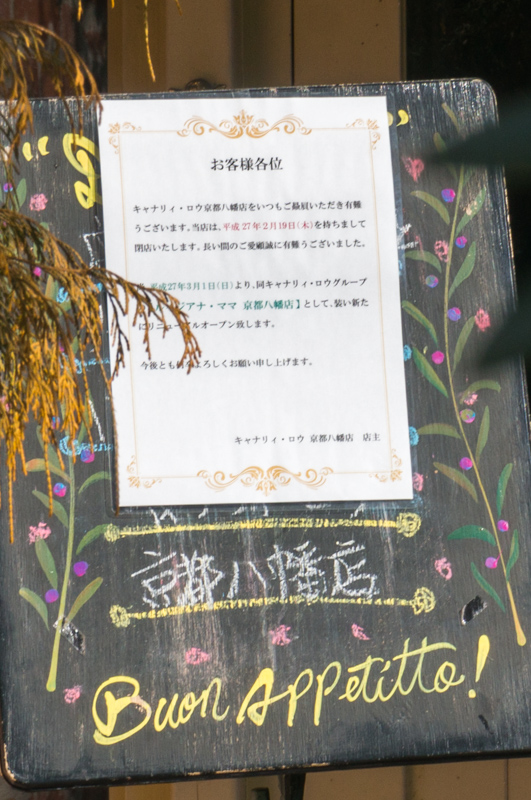 お客様各位
キャナリィ・ロウ京都八幡店をいつもご贔屓いただき有難
うございます。当店は、平成27年2月19日(木)を持ちまして
閉店いたします。長い間のご愛顧誠に有難うございました。
平成27年3月1日(日)より、同キャナリィ・ロウグループ
ジアナ・ママ 京都八幡店】として、装い新た
にリニューアルオープン致します。
今後とも何卒よろしくお願い申し上げます。
キャナリィ・ロウ 京都八幡店 店主
京都八幡店
Buon Appetitto!